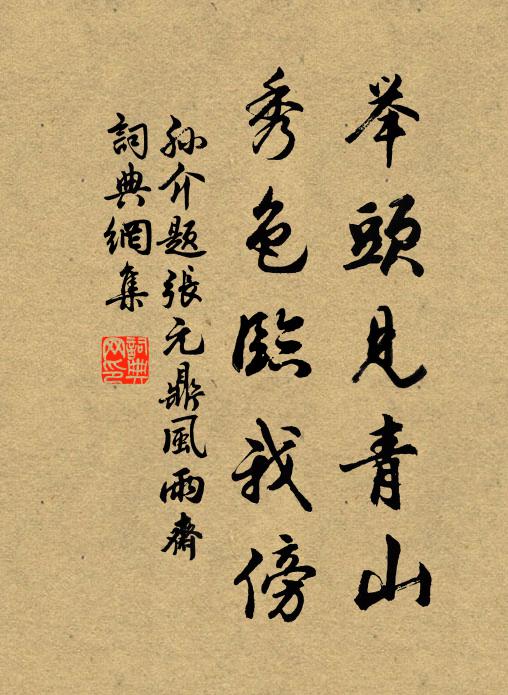 举頭見青山
秀色臨我傍
孫介題張元鼎風雨齋
詞典網集
詞典网印